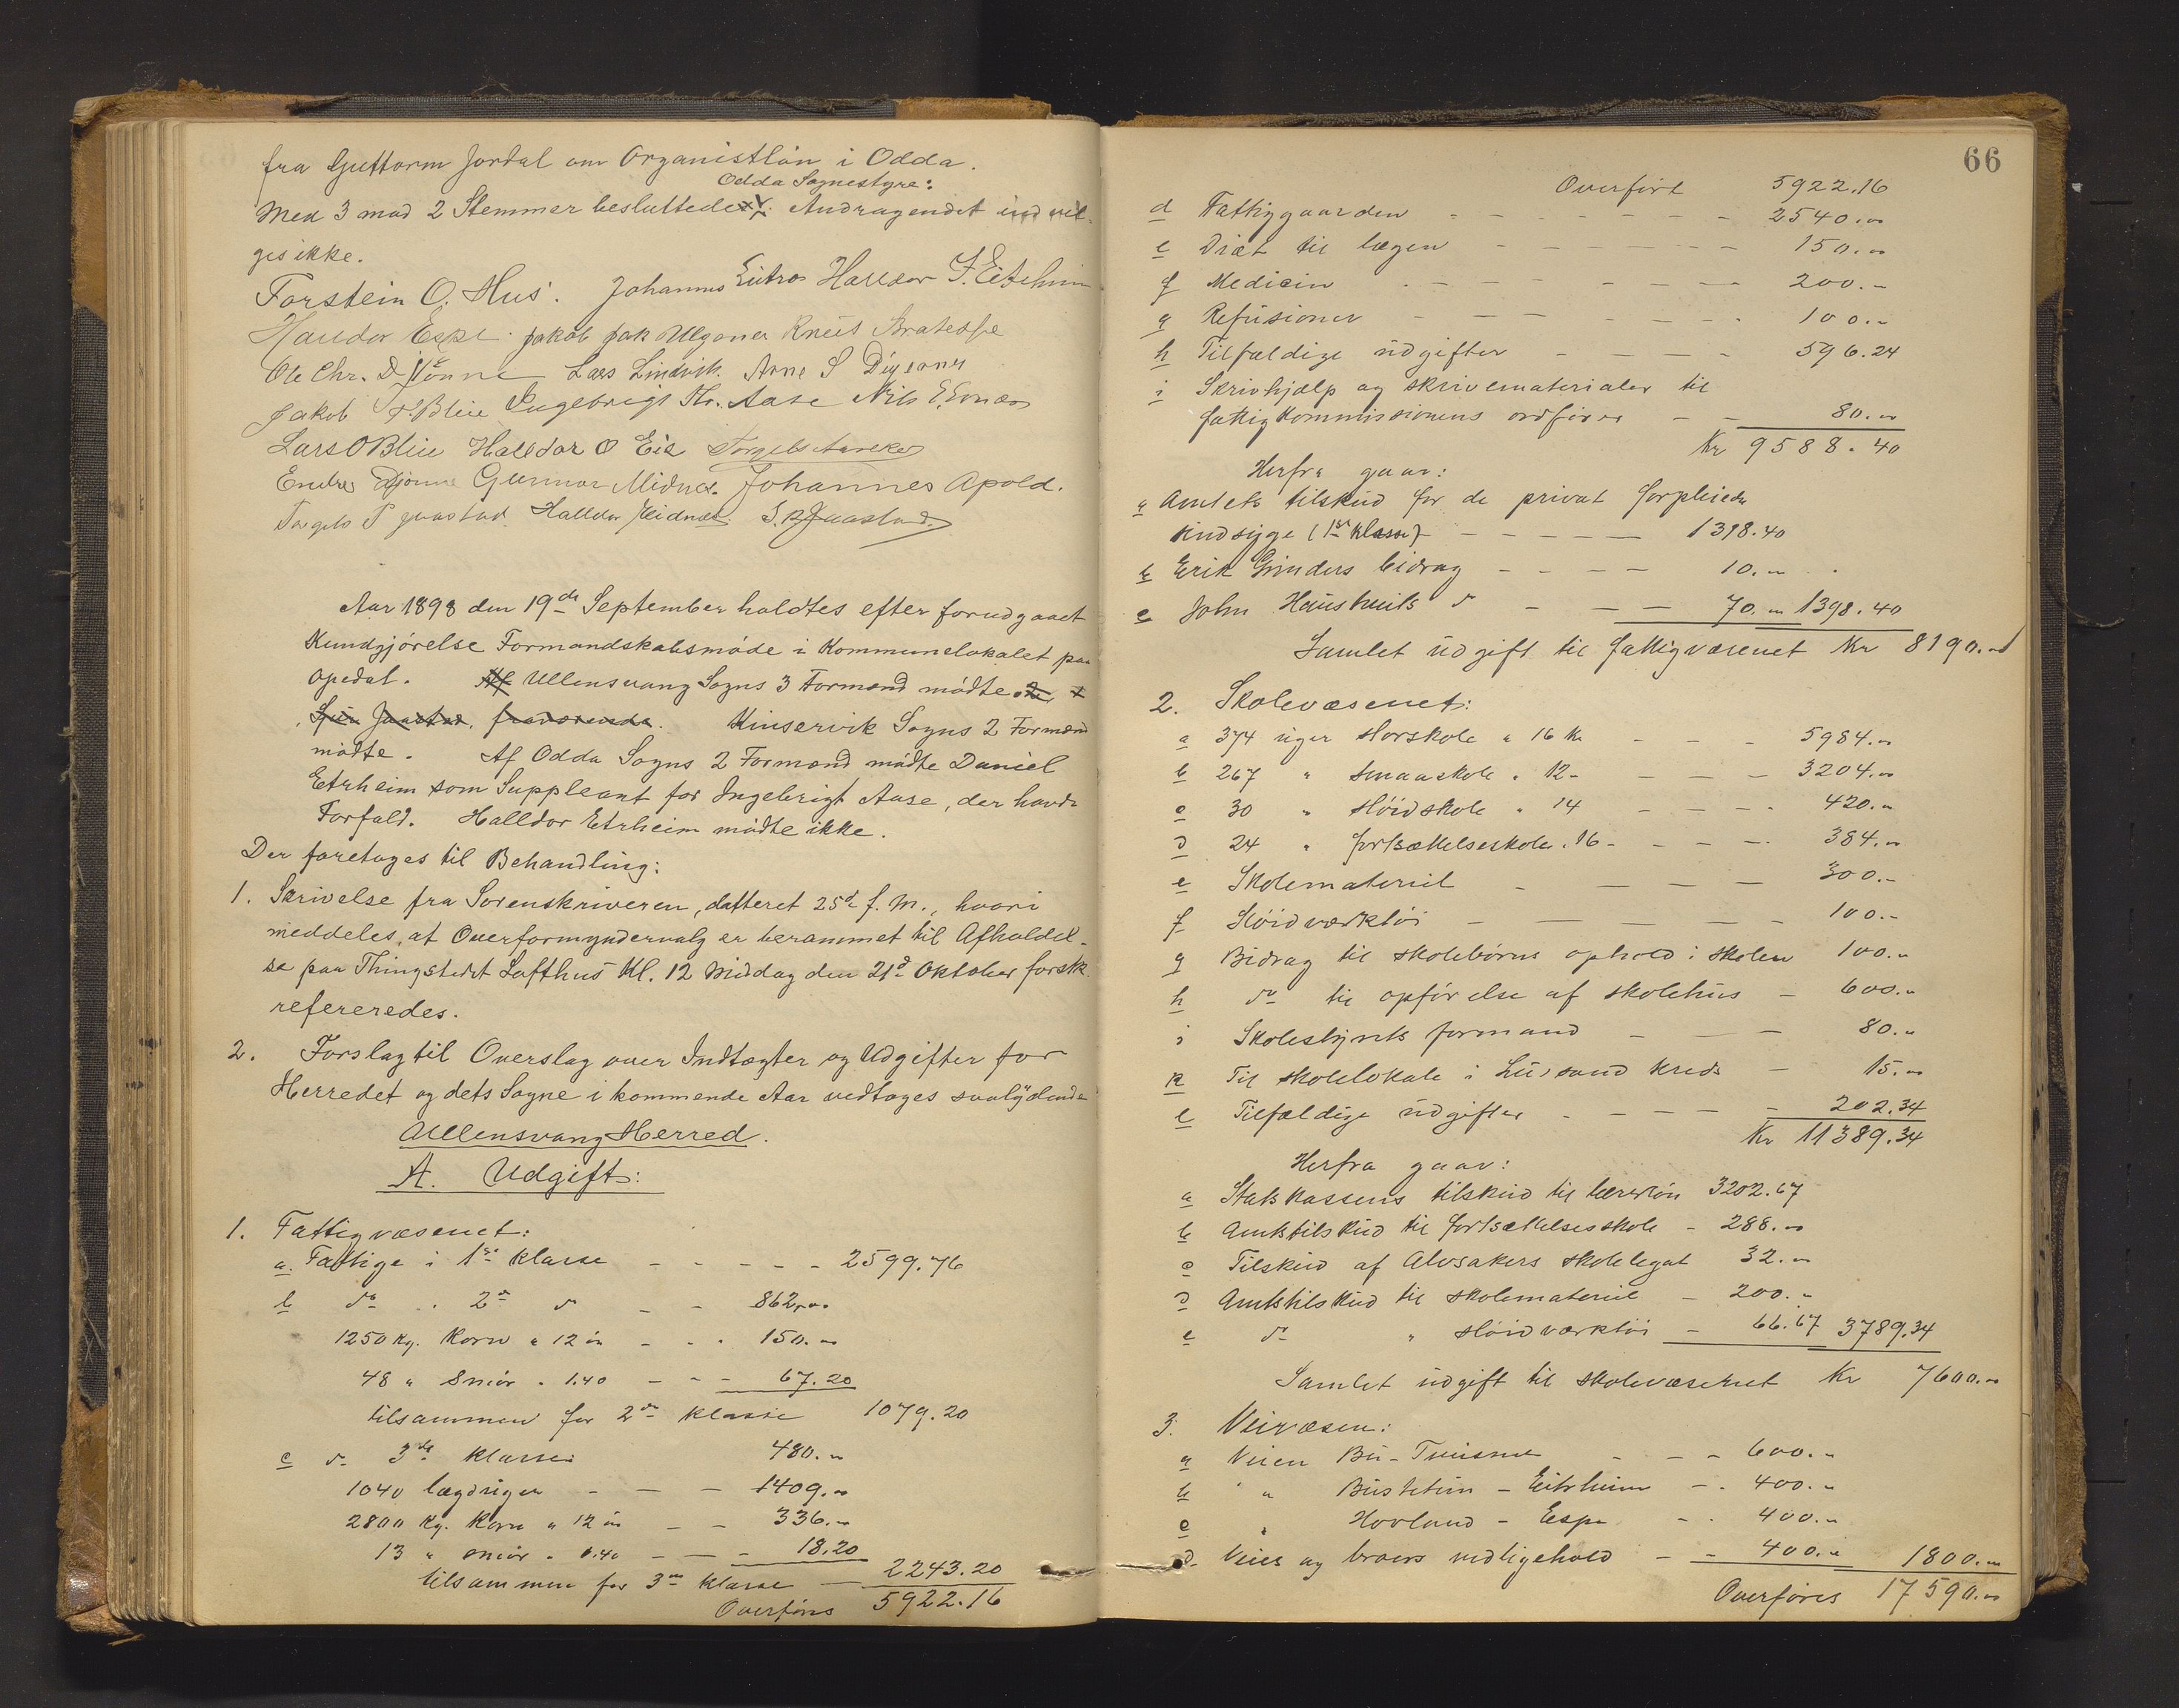 fra Guttorm Jordal om Organistløn i Odda.
Odda Sognestyre:
Med 3 mod 2 Stemmer besluttedes: Andragendet indvil-
ges ikke.
Torstein O. Hus. Johannes Eitro Halldor T. Eitrheim
Halldor Espe. Jakob Jak Ulgenes Knut
Ole Chr. Djønne Lars Lindvik. Arne S Digranes
Jakob Bleie Ingebrigt Aase Nils E.
Lars O Bleie Halldor O Eie Torgils Aareker
Endre Djønne Gunnar Midnes. Johannes Apold.
Torgils T Jaastad Halldor Midnes. S. Jaastad.
Aar 1898 den 19de September holdtes efter forudgaaet
Kundgjørelse Formandskabsmøde i Kommunelokalet paa
Opedal. Af Ullensvang Sogns 3 Formænd mødte 2,
Jaastad, fraværende. Kinservik Sogns 2 Formænd
mødte. Af Odda Sogns 2 Formænd mødte Daniel
Etrheim som Suppleant for Ingebrigt Aase, der havde
Forfald. Halldor Etrheim mødte ikke.
Der foretoges til Behandling:
1. Skrivelse fra Sorenskriveren, datteret 25de f. M., hvori
meddeles, at Overformyndervalg er berammet til Afholdel-
se paa Thingstedet Lofthus Kl. 12 Middag den 21de Oktober førstk.
refereredes.
2. Forslag til Overslag over Indtægter og Udgifter for
Herredet og dets Sogne i kommende Aar vedtoges saalydende
Ullensvang Herred.
A. Udgift:
1. Fattigvæsenet:
a. Fattige i 1ste klasse - - - - - 2599.76
b do " 2den do - - 862.00
1250 kg. Korn a 12 øre - - - 150.00
48 " Smør " 1.40 - - - 67.20
tilsammen for 2den klasse 1079.20
c do 3die klasse 480.00
1040 lægduger - - - 1409.00
2800 kg. Korn a 12 øre - - 336.00
13 " smør " 1.40 - - - 18.20
tilsammen for 3die klasse - 2243.20
Overføres 5922.16
66
Overført 5922.16
d Fattiggaarden - - - - - - - 2540.00
e Diæt til lægen - - - - - - 150.00
f Medicin - - - - - - - 200.-
g Refusioner - - - - - - 100.-
h Tilfældige udgifter - - - - 596.24
i Skrivhjælp og skrivematerialer til
fattigkommissionens ordfører - - 80.00
Kr 9588.40
Herfra gaar:
a Amtets tilskud for de privat forpleiede
sindsyge (1ste klasse) - - - - - 1318.40
b Erik Grinders bidrag - - - - 10.00
c John do - - - 70.00 1398.40
Samlet udgift til fattigvæsenet Kr 8190.00
2. Skolevæsenet:
a 374 uger storskole a 16 Kr - - - 5984.00
b 267 " smaaskole " 12- - - - 3204.00
c 30 " sløidskole " 14 - - - - 420.00
d 24 " fortsættelseskole " 16- - - - 384.00
e Skolemateriel - - - - 300.-
f Sløidværktøi - - - - 100.-
g Bidrag til skolebørns ophold i skolen 100.-
h do til opførelse af skolehus - 600.-
i Skolestyrets formand - - - 80.-
k Til skolelokale i kreds - 15.00
l Tilfældige udgifter - - - - - 202.34
Kr 11389.34
Herfra gaar:
a Statskassens tilskud til lærerløn 3202.67
b Amtstilskud til fortsættelsesskole - 288.00
c Tilskud af Alvsakers skolelegat 32.00
d Amtstilskud til skolemateriel - 200.-
e do " sløidværktøi - 66.67 3789.34
Samlet udgift til skolevæsenet Kr 7600.00
3. Veivæsen:
a Veien Bu - - - 600.-
b " Bustetun - Eitrheim - - 400.-
c " Hovland - Espe - - 400.-
d. Veies og broers vedligehold - - 400.- 1800.00
Overføres 17590.00